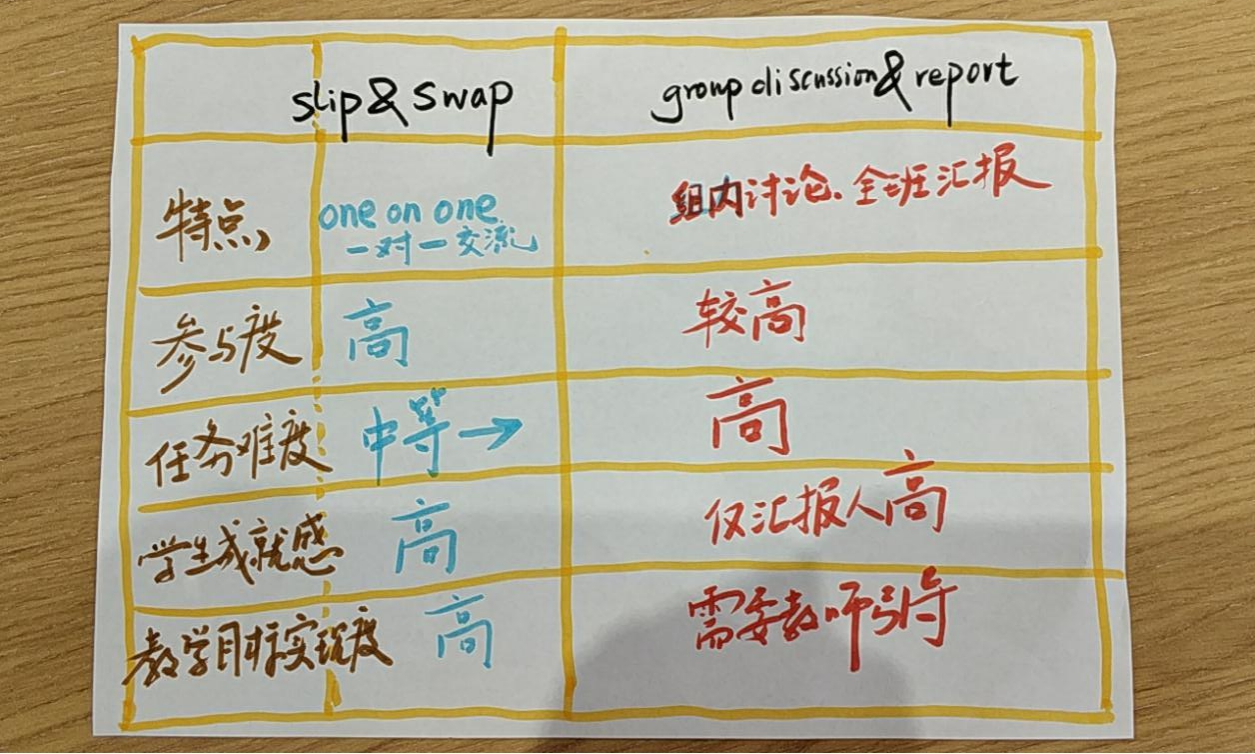 slip & swap
group discussion & report
特点
one on one
一对一交流
组内讨论、全班汇报
参与度
高
较高
任务难度
中等→
高
学生成就感
高
仅汇报人高
教学目标实现度
高
需要教师引导